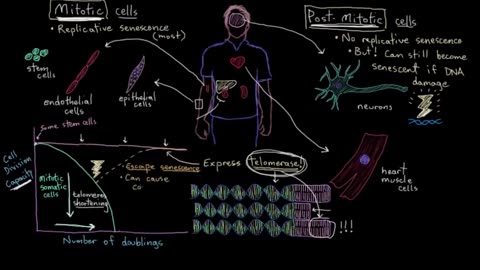 Mitotic cells
• Replicative senescence
(most)
stem
cells
endothelial
cells
epithelial
cells
Post-Mitotic cells
• No replicative senescence
• But! Can still become
senescent if DNA
damage
neurons
heart
muscle
cells
Some stem cells
Cell
Division
Capacity
Mitotic
somatic
cells
telomere
shortening
Escape senescence
• Can cause
co
Number of doublings
Express telomerase!
!!!